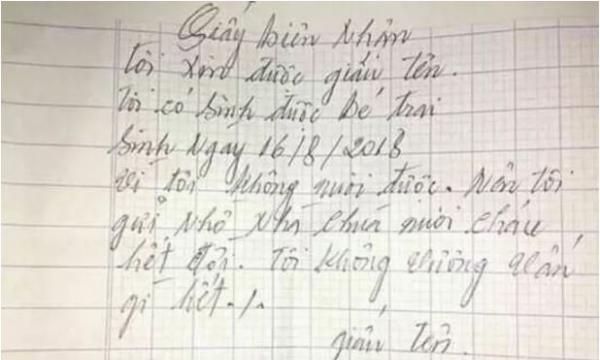 Giấy biên Nhận
Tôi xin được giấu tên.
Tôi có sinh được bé trai
Sinh Ngày 16/8/2018
Vì tôi không nuôi được. Nên tôi
gửi nhờ nhà chùa nuôi cháu
hết đời. Tôi không vướng vấn
gì hết./.
giấu tên.